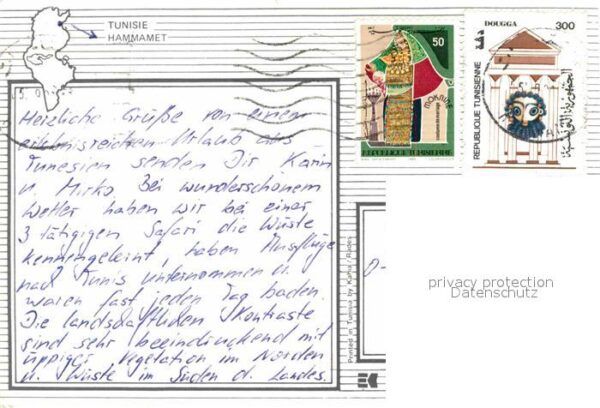 TUNISIE
HAMMAMET
50
MOKNINE
REPUBLIQUE TUNISIENNE
DOUGGA
300
REPUBLIQUE TUNISIENNE
الجمهورية التونسية
دقة
Herzliche Grüße von einem
erlebnisreichen Urlaub aus
Tunesien senden Dir Karin
u. Mirko Bei wunderschönem
Wetter haben wir bei einer
3 tähgigen Safari die Wüste
kennengelernt, haben Ausflüge
nach Tunis unternommen u.
waren fast jeden Tag baden.
Die landschaftlichen Kontraste
sind sehr beeindruckend mit
üppiger Vegetation im Norden
u. Wüste im Süden d. Landes.
Printed in Tunisia by Kahia / Rades
D-
privacy protection
Datenschutz